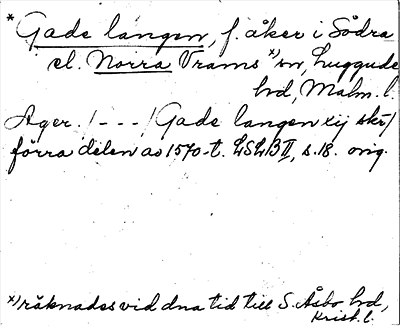 * Gade langen, f. åker i Södra
el. Norra Vrams x) sn, Luggude
hd, Malm. l.
Ager. /---/ Gade langen xij skr/
förra delen av 1570-t. LSLB II, s. 18. orig.
x) räknades vid dna tid till S. Åsbo hd,
Krist. l.